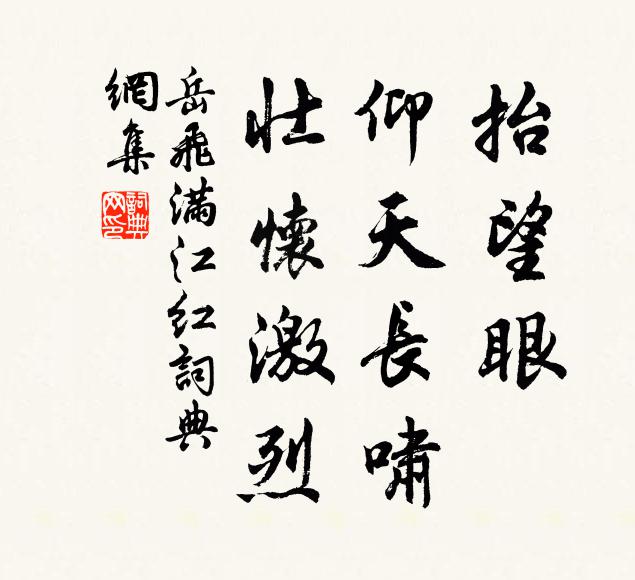 抬望眼
仰天長嘯
壯懷激烈
岳飛滿江紅詞典
網集
詞典
网印